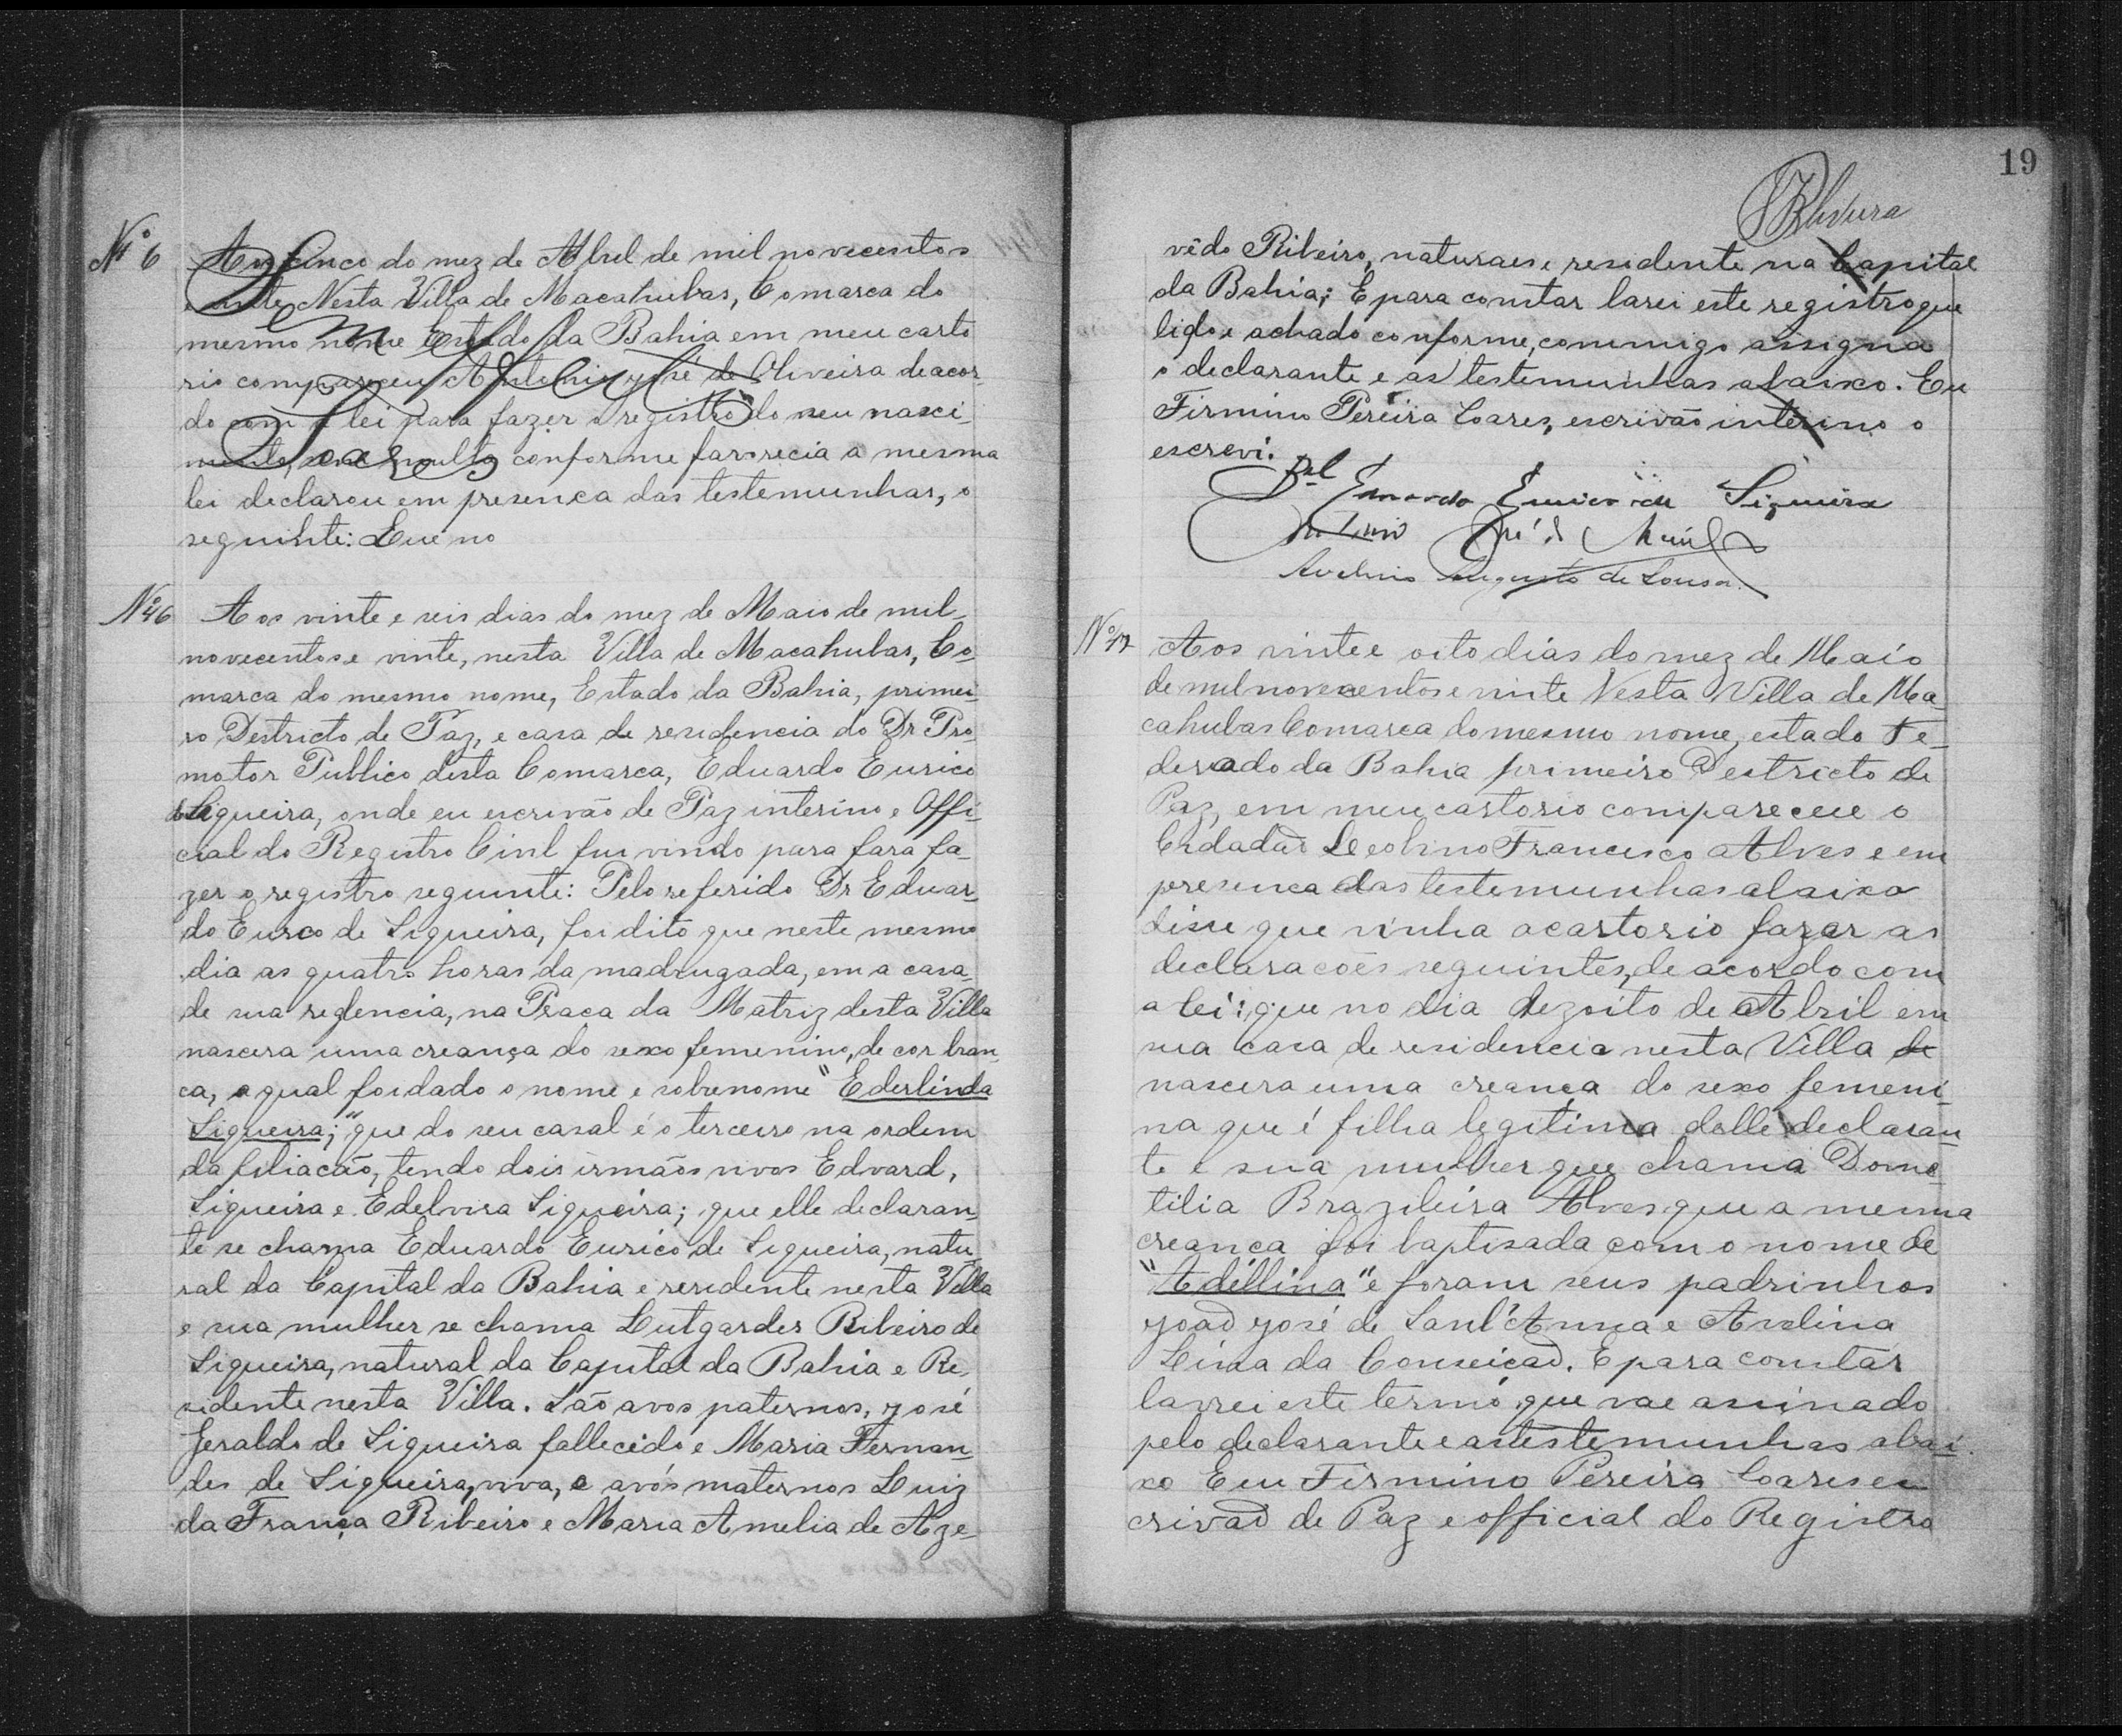 Nº 6
Aos cinco do mez de Abril de mil novecentos
e vinte Nesta Villa de Macahubas, Comarca do
mesmo nome Estado da Bahia em meu carto
rio compareceu Antonio José de Oliveira deacor-
do com a lei para fazer o registro do seu nasci-
mento, sem multa conforme favorecia a mesma
lei declarou em presenca das testemunhas, o
seguinte: Que no
Nº 46
Aos vinte e seis dias do mez de Maio de mil-
novecentos e vinte, nesta Villa de Macahubas, Co-
marca do mesmo nome, Estado da Bahia, primei-
ro Destricto de Paz, e casa de residencia do Dr Pro-
motor Publico desta Comarca, Eduardo Eurico
de Siqueira, onde eu escrivão de Paz interino e Offi-
cial do Registro Civil fui vindo para fara fa-
zer o registro seguinte: Pelo referido Dr Eduar-
do Eurco de Siqueira, foi dito que neste mesmo
dia as quatro horas da madrugada, em a casa
de sua redencia, na Praca da Matriz desta Villa
nascera uma creança do sexo femenino, de cor bran-
ca, a qual foi dado o nome e sobrenome "Ederlinda
Siqueira;" que do seu casal é o terceiro na ordem
da filiacão, tendo dois irmãos vivos Edvard,
Siqueira e Edelvira Siqueira; que elle declaran-
te se chama Eduardo Eurico de Siqueira, natu-
ral da Capital da Bahia e residente nesta Villa
e sua mulher se chama Lutgardes Ribeiro de
Siqueira, natural da Capital da Bahia e Re-
sidente nesta Villa. São avos paternos, José
Geraldo de Siqueira fallecido e Maria Fernan-
des de Siqueira, viva, e avós maternos Luiz
da França Ribeiro e Maria Amelia de Aze-
19
vêdo Ribeiro, naturaes e residente na Capital
da Bahia; E para constar larei este registro que
lido e achado conforme, commigo assigna
o declarante e as testemunhas abaixo. Eu
Firmino Pereira Soares, escrivão interino o
escrevi.
Bel Eduardo Eurico de Siqueira
Antonio José de
Avelino Augusto de Sousa.
Nº 47
Aos vinte e oito dias do mez de Maio
de mil novecentos e vinte Nesta Villa de Ma-
cahubas Comarca do mesmo nome, estado Fe-
derado da Bahia primeiro Destricto de
Paz, em meu cartorio compareceu o
Cidadão Leolino Francisco Alves e em
presenca das testemunhas abaixo
disse que vinha a cartorio fazer as
declaracoes seguintes, de acordo com
a lei: que no dia dezoito de Abril em
sua casa de residencia nesta Villa de
nascera uma creança do sexo femeni-
na que é filha legitima delle declaran-
te e sua mulher que chama Dome-
tilia Brazileira Alves que a mesma
creança foi baptisada com o nome de
"Adellina" e foram seus padrinhos
João José de Sant'Anna e Avelina
Lina da Conseicão. E para constar
lavrei este termo que vae assinado
pelo declarante e as testemunhas abai-
xo Eeu Firmino Pereira Soares es
crivão de Paz e official do Registro